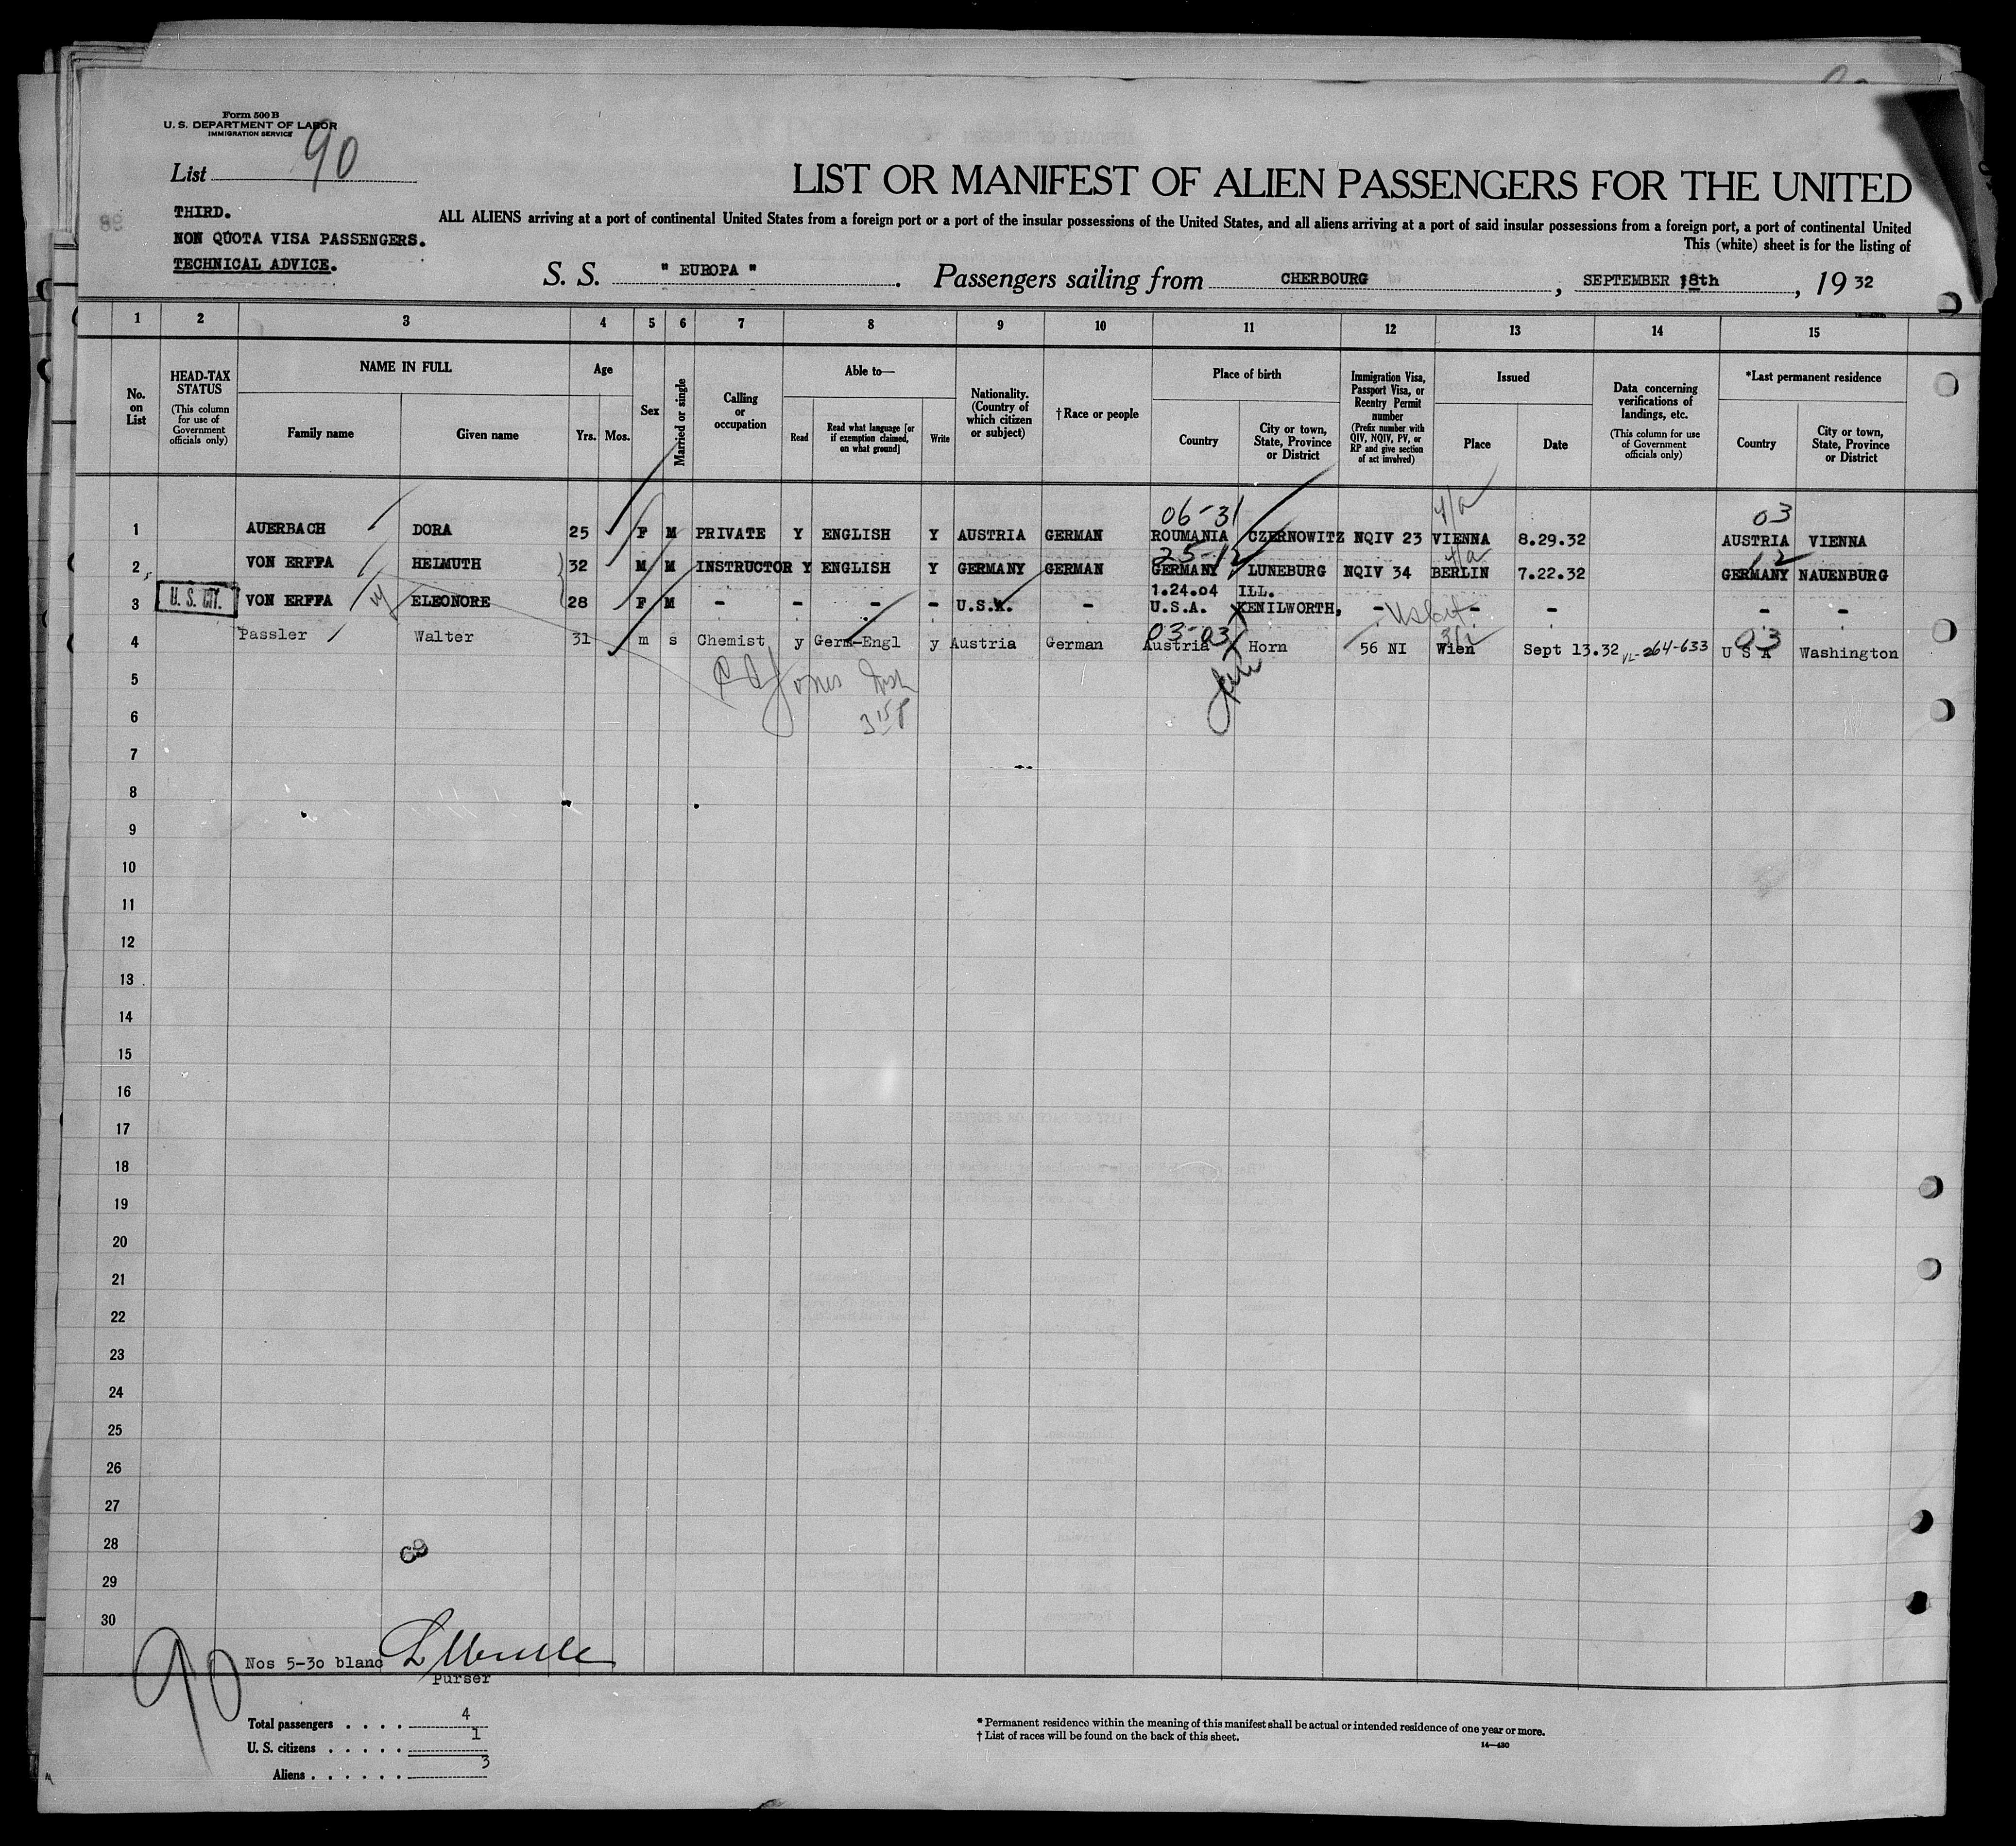 Form 500 B
U. S. DEPARTMENT OF LABOR
IMMIGRATION SERVICE
List 90
LIST OR MANIFEST OF ALIEN PASSENGERS FOR THE UNITED
THIRD.
NON QUOTA VISA PASSENGERS.
TECHNICAL ADVICE.
ALL ALIENS arriving at a port of continental United States from a foreign port or a port of the insular possessions of the United States, and all aliens arriving at a port of said insular possessions from a foreign port, a port of continental United
This (white) sheet is for the listing of
S. S. " EUROPA ". Passengers sailing from CHERBOURG, SEPTEMBER 18th, 19 32
1 2 3 4 5 6 7 8 9 10 11 12 13 14 15
No. on List
HEAD-TAX STATUS
(This column for use of Government officials only)
NAME IN FULL
Family name Given name
Age
Yrs. Mos.
Sex
Married or single
Calling or occupation
Able to—
Read Read what language [or if exemption claimed, on what ground] Write
Nationality. (Country of which citizen or subject)
†Race or people
Place of birth
Country City or town, State, Province or District
Immigration Visa, Passport Visa, or Reentry Permit number
(Prefix number with QIV, NQIV, PV, or RP and give section of act involved)
Issued
Place Date
Data concerning verifications of landings, etc.
(This column for use of Government officials only)
*Last permanent residence
Country City or town, State, Province or District
06-31 4/a 03
1 AUERBACH DORA 25 F M PRIVATE Y ENGLISH Y AUSTRIA GERMAN ROUMANIA CZERNOWITZ NQIV 23 VIENNA 8.29.32 AUSTRIA VIENNA
25-12 4/a 12
2 VON ERFFA HELMUTH 32 M M INSTRUCTOR Y ENGLISH Y GERMANY GERMAN GERMANY LUNEBURG NQIV 34 BERLIN 7.22.32 GERMANY NAUENBURG
1.24.04 ILL.
3 U. S. CIT. VON ERFFA ELEONORE 28 F M - - - - U.S.A. - U.S.A. KENILWORTH, - - - - -
03-03 03
4 Passler Walter 31 m s Chemist y Germ-Engl y Austria German Austria Horn 56 NI Wien Sept 13.32 VL-264-633 U S A Washington
5
6
7
8
9
10
11
12
13
14
15
16
17
18
19
20
21
22
23
24
25
26
27
28
29
30
90
Nos 5-30 blanc
Purser
Total passengers 4
U. S. citizens 1
Aliens 3
* Permanent residence within the meaning of this manifest shall be actual or intended residence of one year or more.
† List of races will be found on the back of this sheet.
14—430